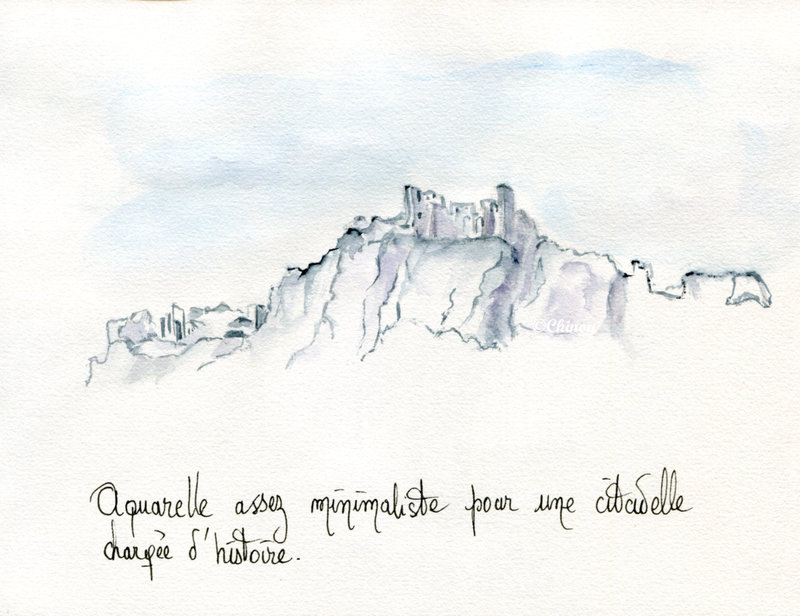 ©Chinou
Aquarelle assez minimaliste pour une citadelle
chargée d'histoire.